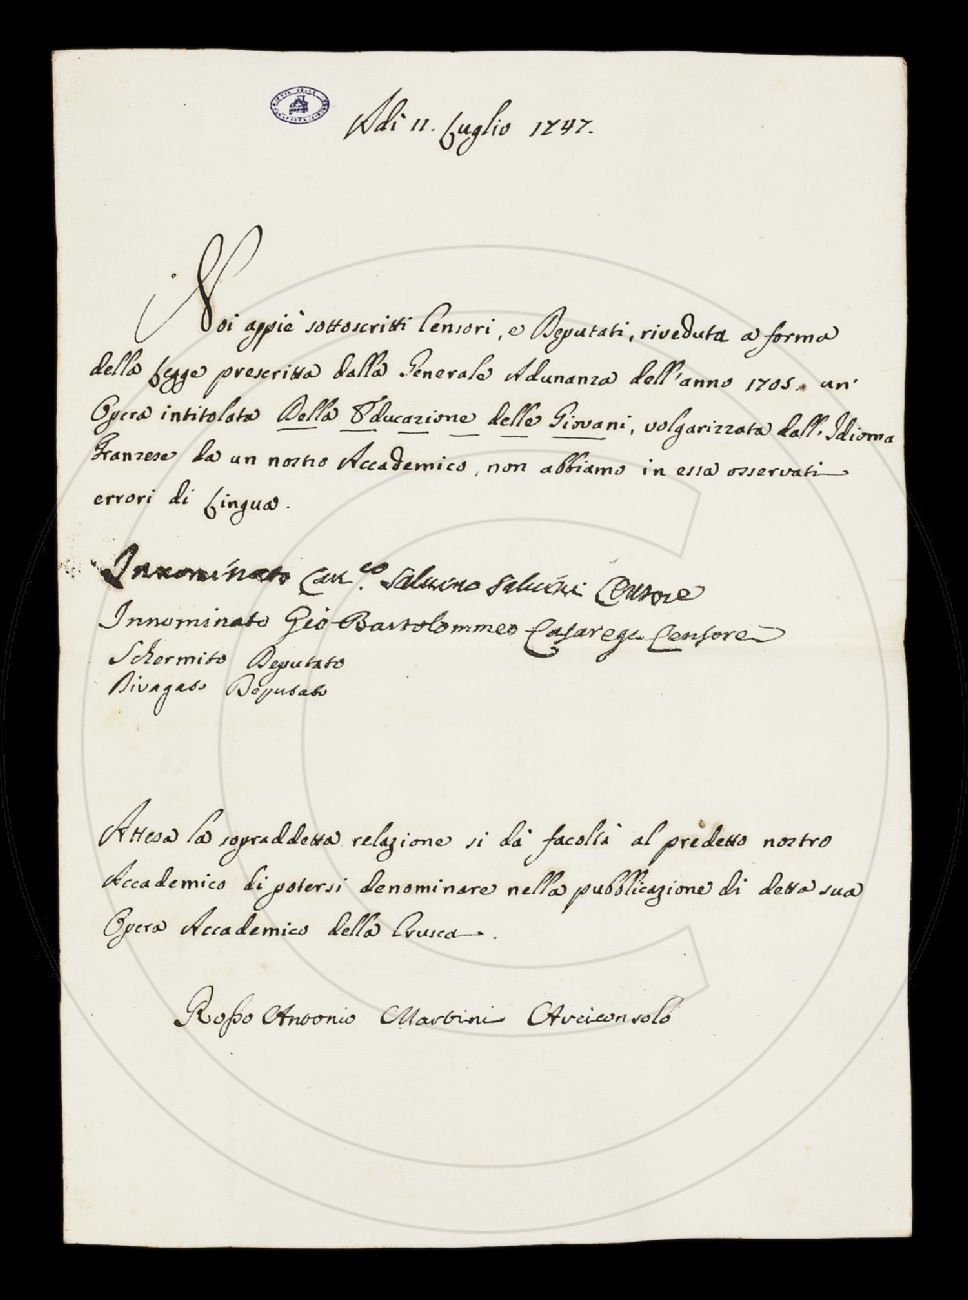 Adì 11. Luglio 1747.
Noi appiè sottoscritti Censori, e Deputati, riveduta a forma
della Legge prescritta dalla Generale Adunanza dell'anno 1705. un'
Opera intitolata Della Educazione delle Giovani, volgarizzata dall'Idioma
Franzese da un nostro Accademico, non abbiamo in essa osservati
errori di Lingua.
Innominato Can.co Salvino Salvini Censore
Innominato Gio Bartolommeo Casaregi Censore
Schermito Deputato
Rivagato Deputato
Attesa la sopraddetta relazione si dà facoltà al predetto nostro
Accademico di potersi denominare nella pubblicazione di detta sua
Opera Accademico della Crusca.
Rosso Antonio Martini Arciconsolo